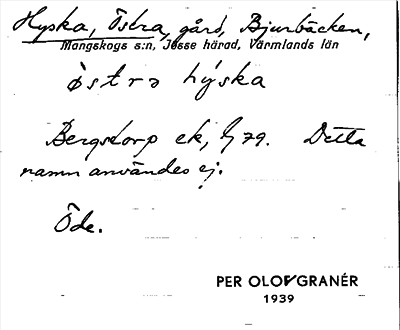 Hyska, Östra, gård, Bjurbäcken,
Mangskogs s:n, Jösse härad, Värmlands län
östra hyska
Bergstorp ek, 79. Detta
namn användes ej.
Öde.
PER OLOV GRANÉR
1939